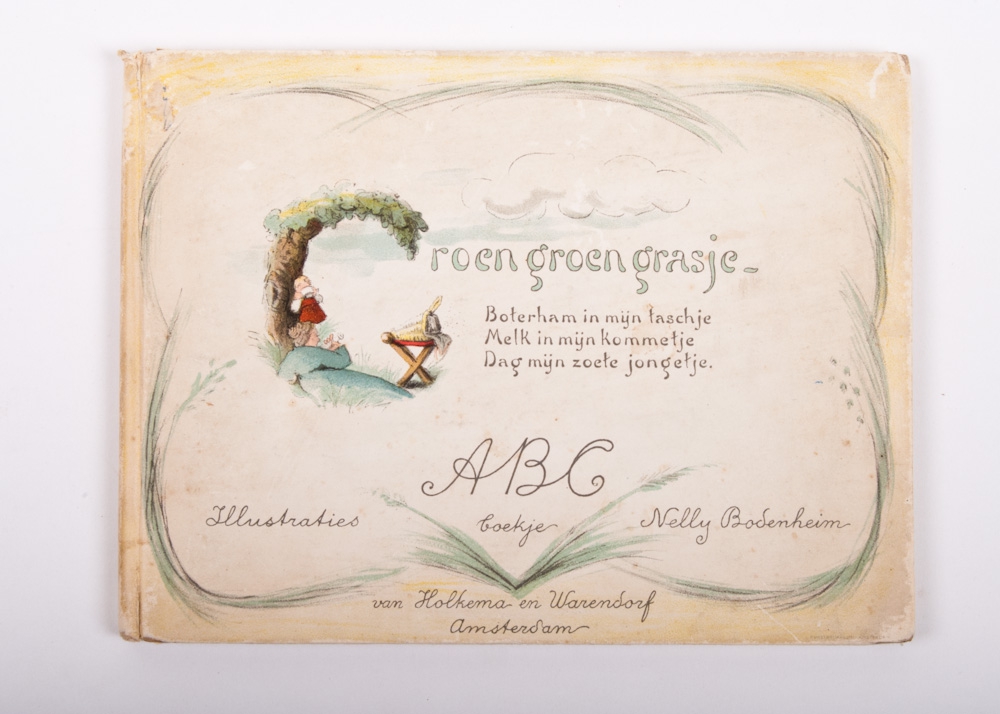 Groen groen grasje-
Boterham in mijn taschje
Melk in mijn kommetje
Dag mijn zoete jongetje.
ABC
Illustraties boekje Nelly Bodenheim
van Holkema en Warendorf
Amsterdam